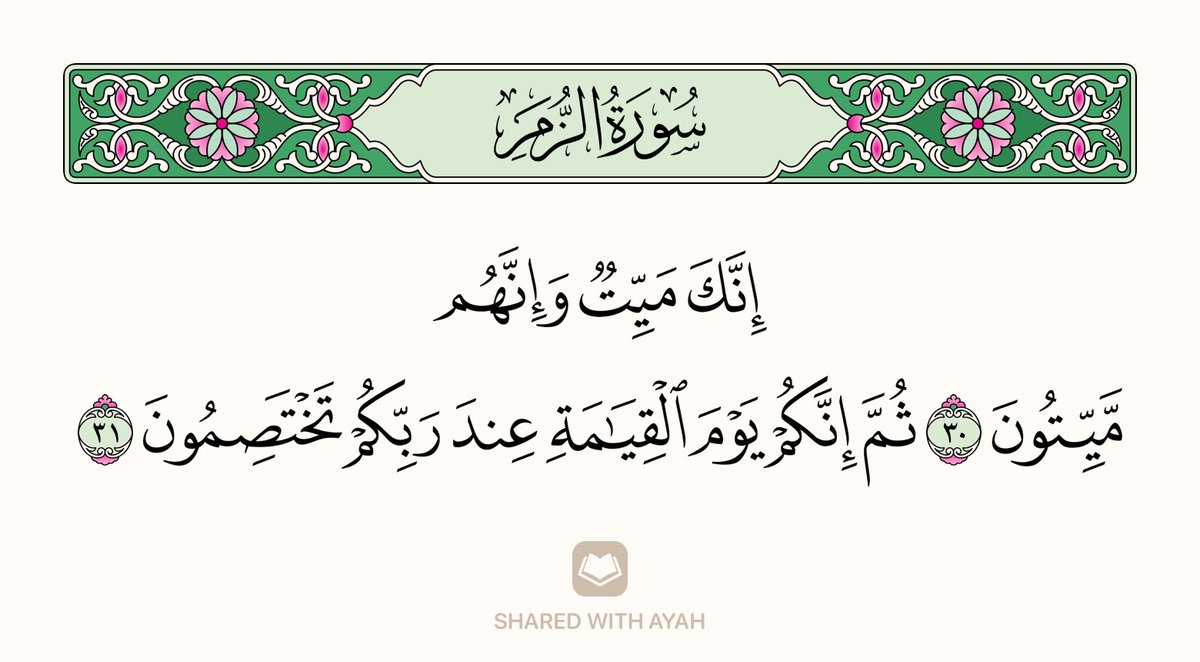 سُورَةُ الزُّمَرِ
إِنَّكَ مَيِّتٌ وَإِنَّهُم
مَّيِّتُونَ ٣٠ ثُمَّ إِنَّكُمْ يَوْمَ ٱلْقِيَـٰمَةِ عِندَ رَبِّكُمْ تَخْتَصِمُونَ ٣١
SHARED WITH AYAH